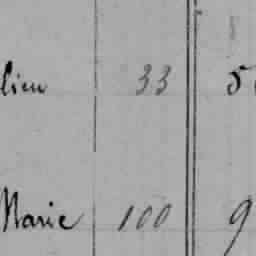 lien 33 5
Marie 100 9